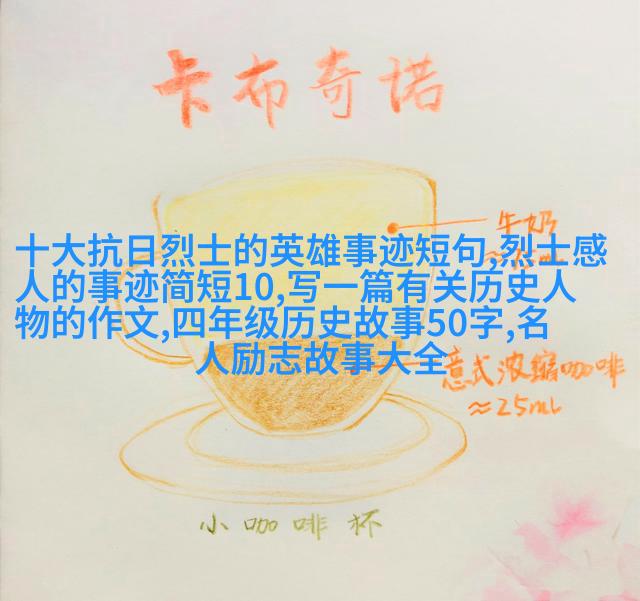 卡布奇诺
牛奶
十大抗日烈士的英雄事迹短句,烈士感
人的事迹简短10,写一篇有关历史人
物的作文,四年级历史故事50字,名
人励志故事大全
意式浓缩咖啡
≈25mL
小咖啡杯